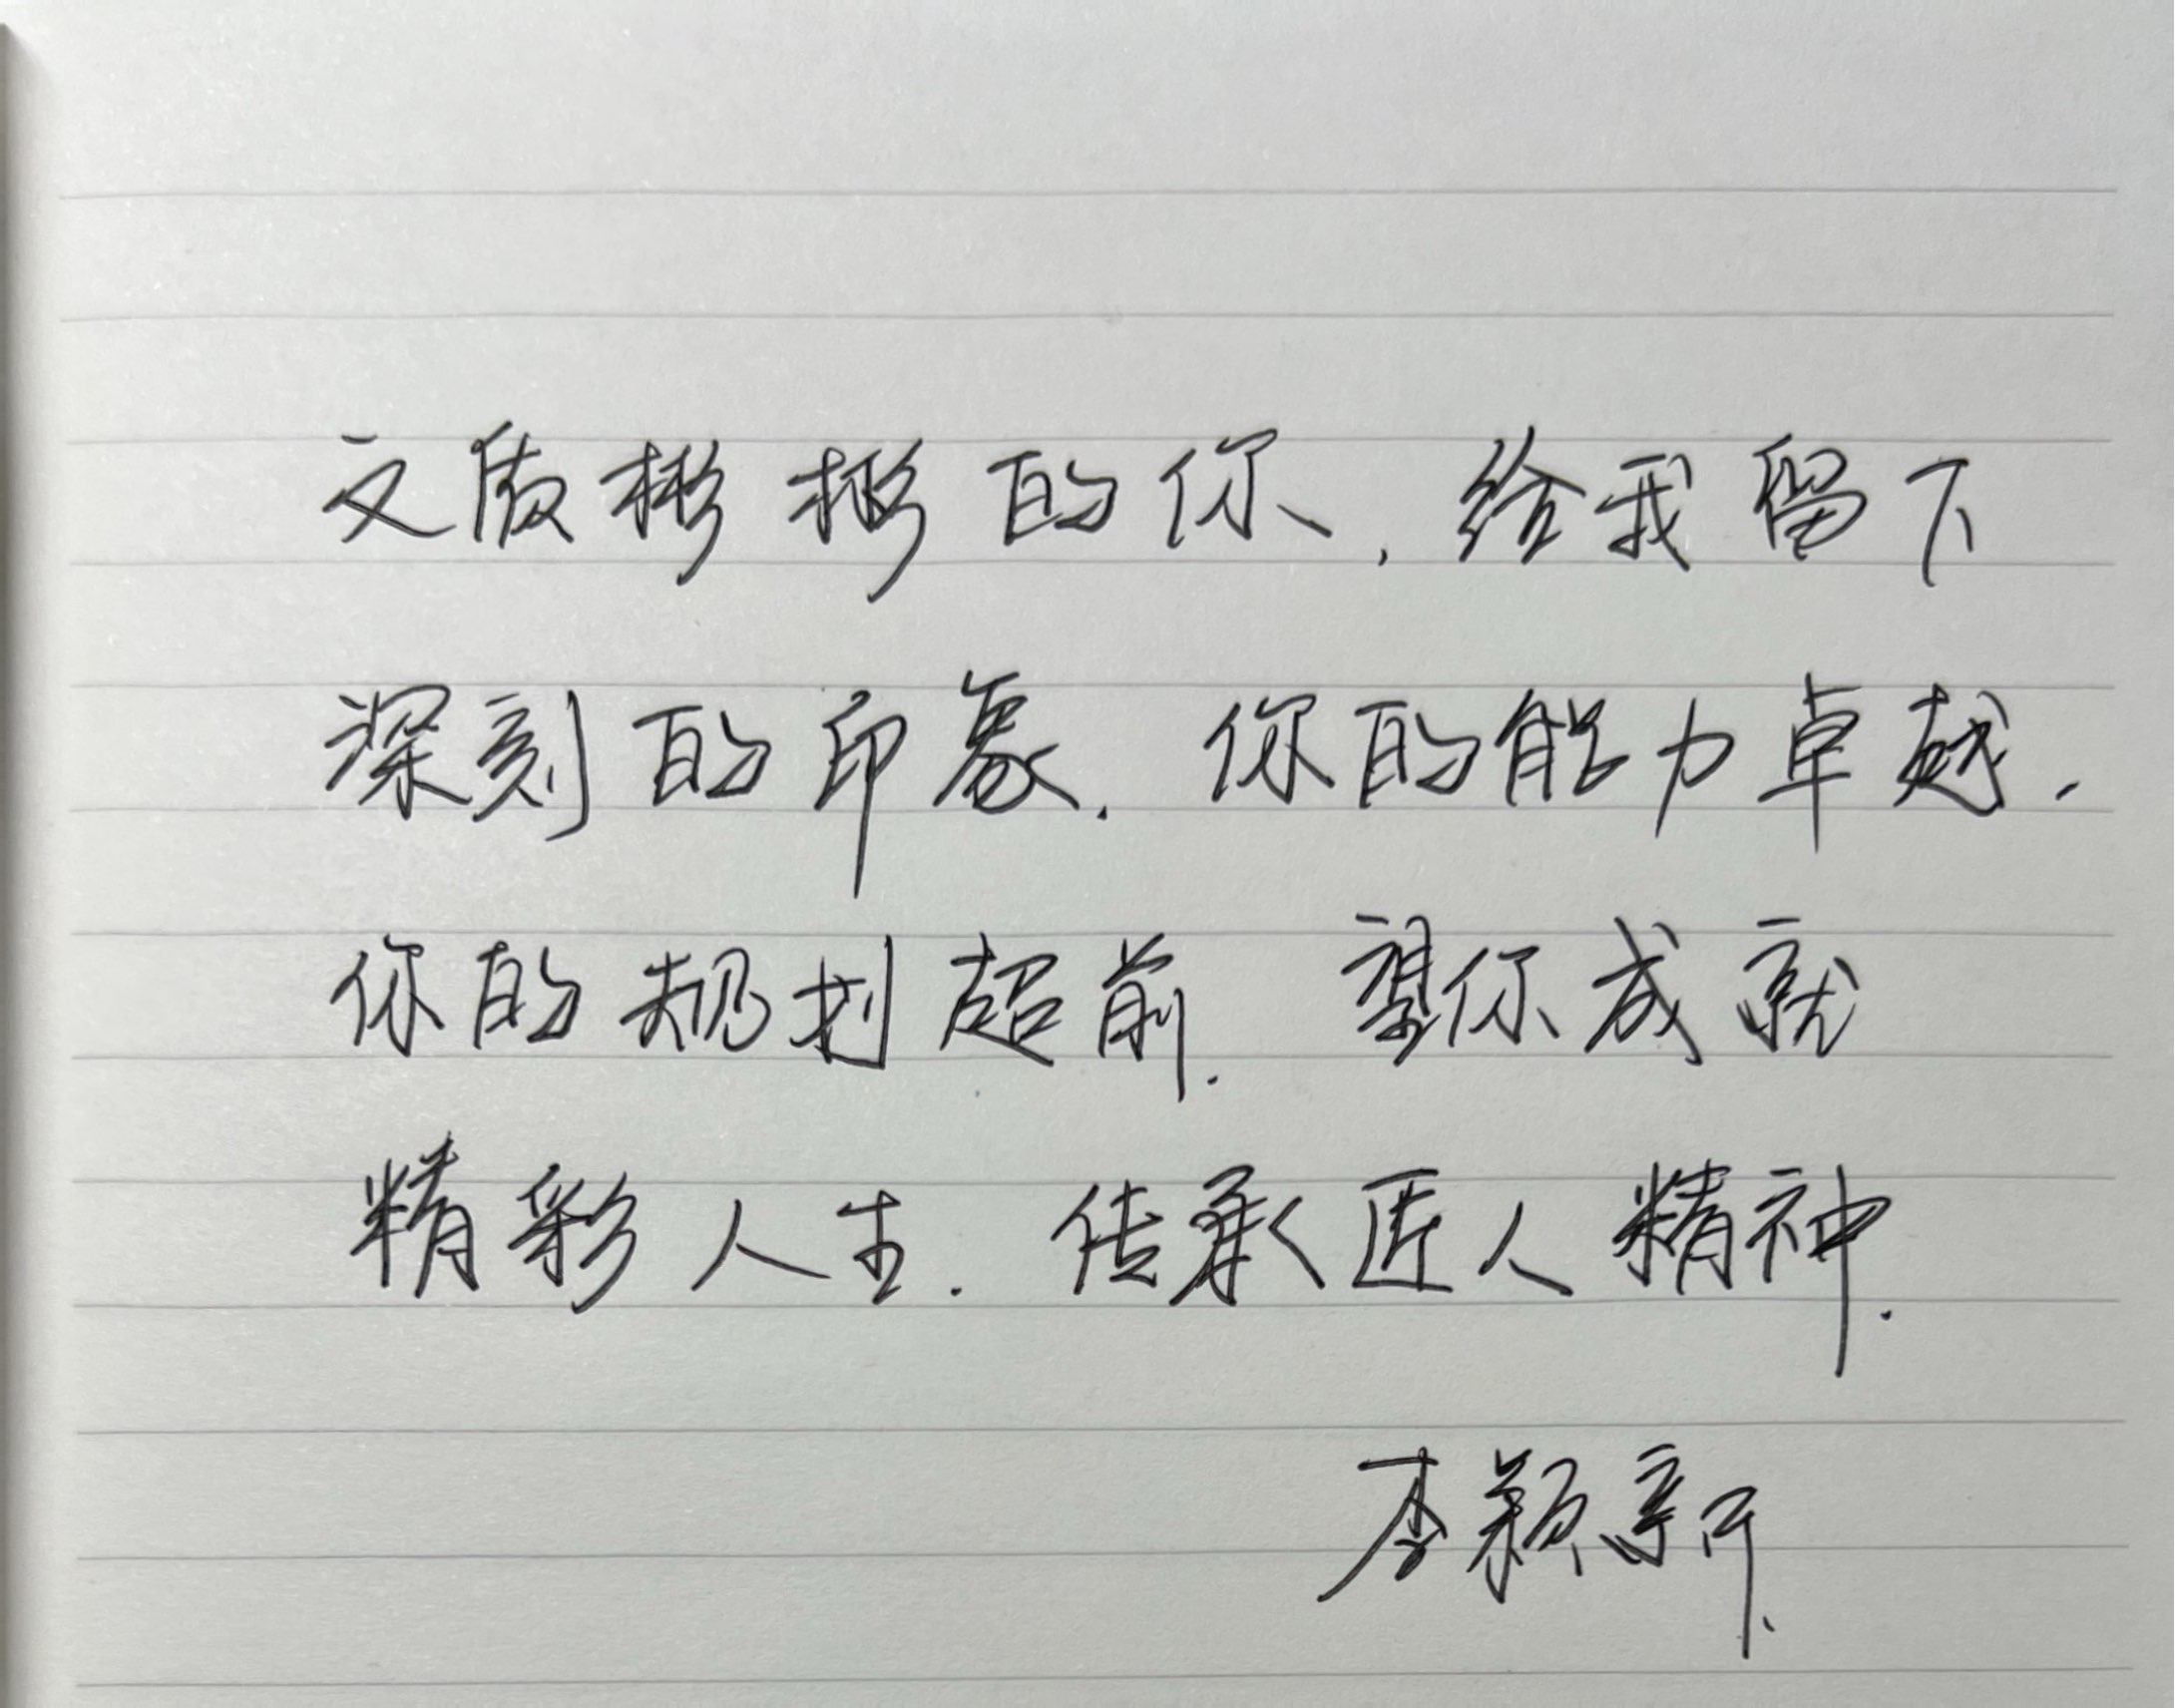 文质彬彬的你，给我留下
深刻的印象．你的能力卓越．
你的规划超前．望你成就
精彩人生．传承匠人精神．
李颖新．